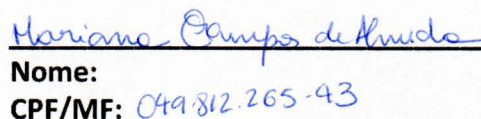 Mariana Campos de Almeida
Nome:
CPF/MF: 049.812.265-93